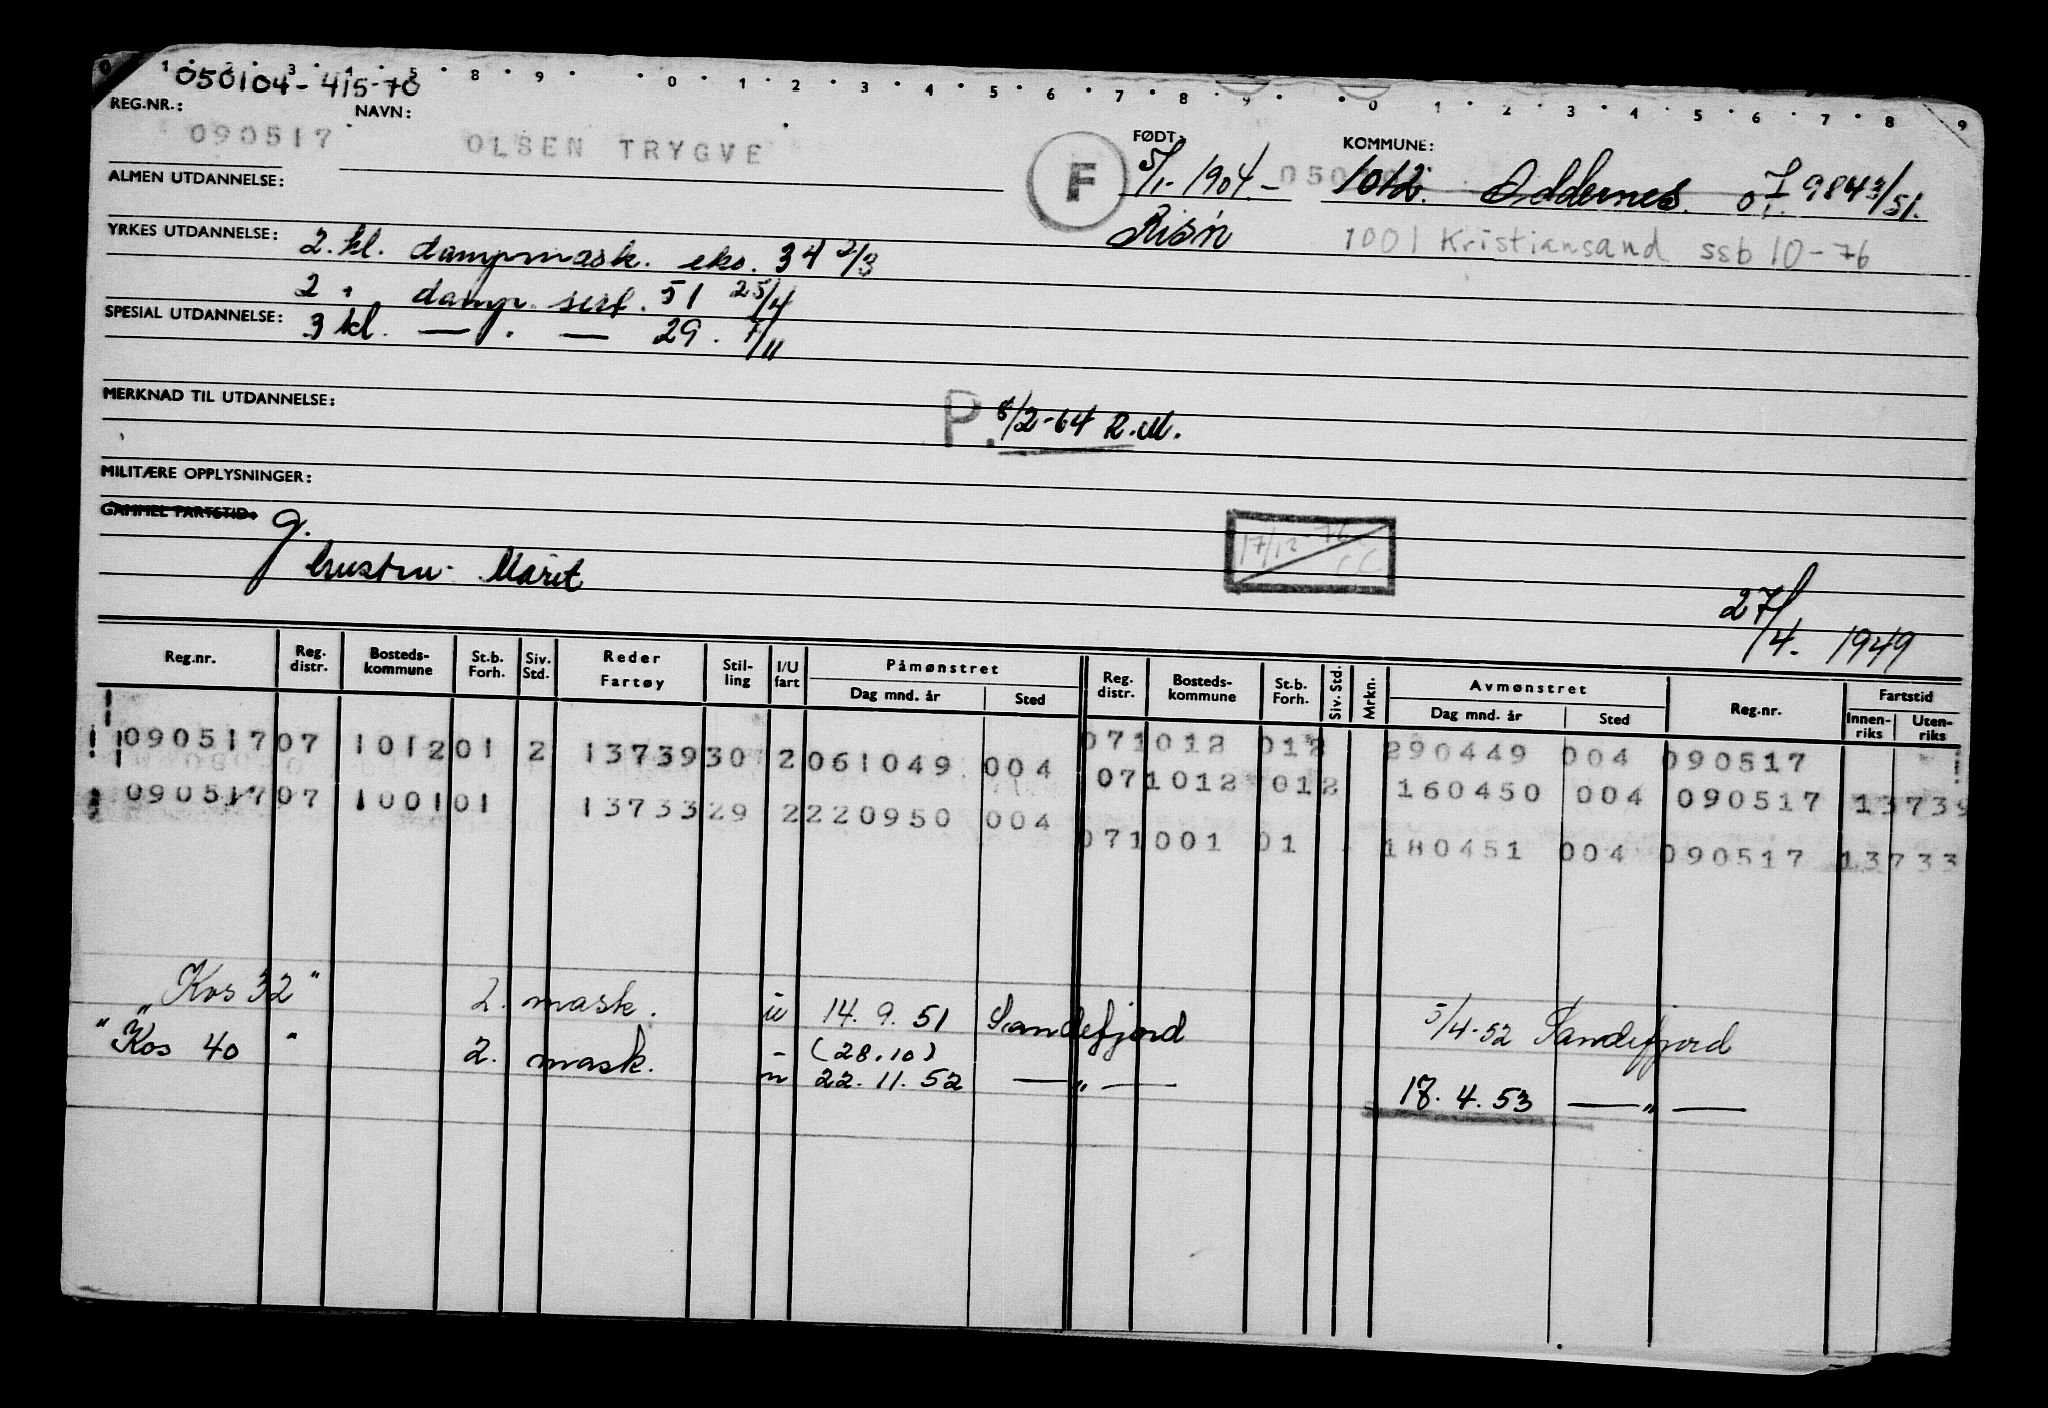 0 1 2 3 4 5 8 9 0 1 2 3 4 5 6 7 8 9 0 1 2 3 4 5 6 7 8 9
050104-415-70
REG.NR.: NAVN: FØDT: KOMMUNE:
090517 OLSEN TRYGVE F 5/1-1904.- 1012. Oddernes.
ALMEN UTDANNELSE:
Risør 1001 Kristiansand ssb 10-76
YRKES UTDANNELSE: 2. kl. dampmask. eks. 34 2/3
2 " damp. sert. 51 25/4
SPESIAL UTDANNELSE: 3 kl. — " — 29. 7/11
MERKNAD TIL UTDANNELSE: P. 8/2-64 R.M.
MILITÆRE OPPLYSNINGER:
GAMMEL FARTSTID: g. 17/12-76 CC
hustru- Marit
27/4. 1949
Reg.nr. Reg. distr. Bosteds-kommune St.b. Forh. Siv. Std. Reder Fartøy Stil-ling I/U fart Påmønstret Dag mnd. år Sted Reg. distr. Bosteds-kommune St.b. Forh. Siv. Std. Mrkn. Avmønstret Dag mnd. år Sted Reg.nr. Fartstid Innen-riks Uten-riks
071012 012 290449 004 090517
090517 07 1012 01 2 13739 30 2 061049 004 071012 012 160450 004 090517 13739
090517 07 1001 01 13733 29 2 220950 004 071001 01 180451 004 090517 13733
"Kos 32" 2. mask. u 14. 9. 51 Sandefjord 5/4-52 Sandefjord
"Kos 40" 2. mask. - (28.10)
u 22. 11. 52 — " — 18. 4. 53 — " —